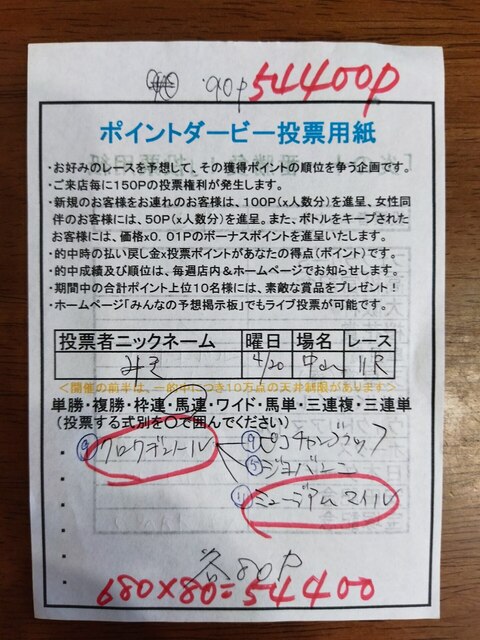 90P 54400P
ポイントダービー投票用紙
・お好みのレースを予想して、その獲得ポイントの順位を争う企画です。
・ご来店毎に150Pの投票権利が発生します。
・新規のお客様をお連れのお客様は、100P(x人数分)を進呈、女性同
伴のお客様には、50P(x人数分)を進呈。また、ボトルをキープされた
お客様には、価格x0.01Pのボーナスポイントを進呈いたします。
・的中時の払い戻し金x投票ポイントがあなたの得点(ポイント)です。
・的中成績及び順位は、毎週店内&ホームページでお知らせします。
・期間中の合計ポイント上位10名様には、素敵な賞品をプレゼント!
・ホームページ「みんなの予想掲示板」でもライブ投票が可能です。
投票者ニックネーム 曜日 場名 レース
みき 4/20 中山 11R
<開催の前半は、一的中につき10万点の天井制限があります>
単勝・複勝・枠連・馬連・ワイド・馬単・三連複・三連単
(投票する式別を○で囲んでください)
クロワデュノール ⑨ピコチャンブラック
⑤ジョバンニ
⑪ミュージアムマイル
各80P
680×80=54400